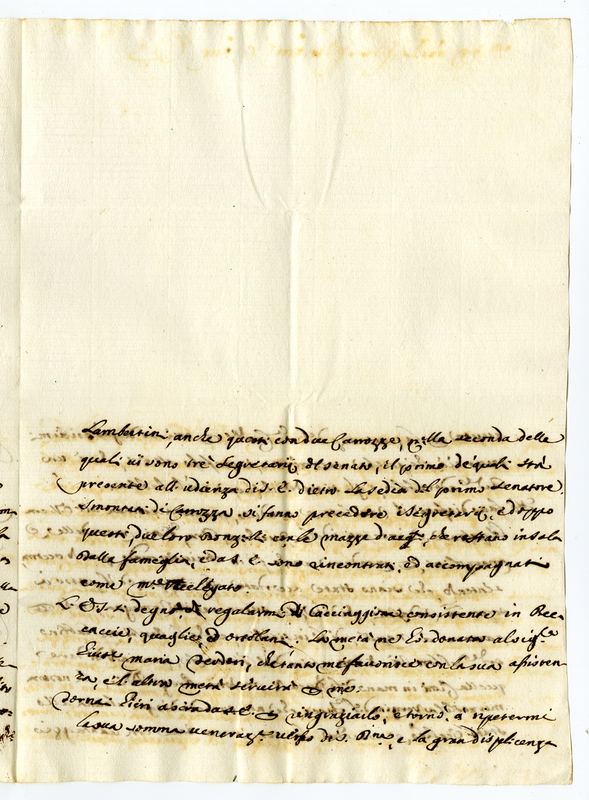 Lambertini, anche questi con due Carrozze, nella seconda delle
quali vi sono tre Segretarij del senato, il primo de quali stà
presente all'udienza di S. E. dietro la sedia del primo senatore.
Smontati di Carozza si fanno precedere i Segretarij, e doppo
questi due loro Donzelli con le mazze d'arg.º, che restano in sala
dalla famiglia, e da S. E. sono rincontrati, ed accompagnati
come
S. E. si degnò di regalarmi di Cacciaggione consistente in Bec-
caccie, quaglie, ed ortolani. La metà ne hò donata al sig.
maria che tanto mi favorisce con la sua assisten-
za, e l'altra metà servirà p. me.
Tornai Jeri a sera da S. E. p. ringraziarlo, e tornò a ripetermi
la sua somma veneraz.e verso di S. e la gran displicenza